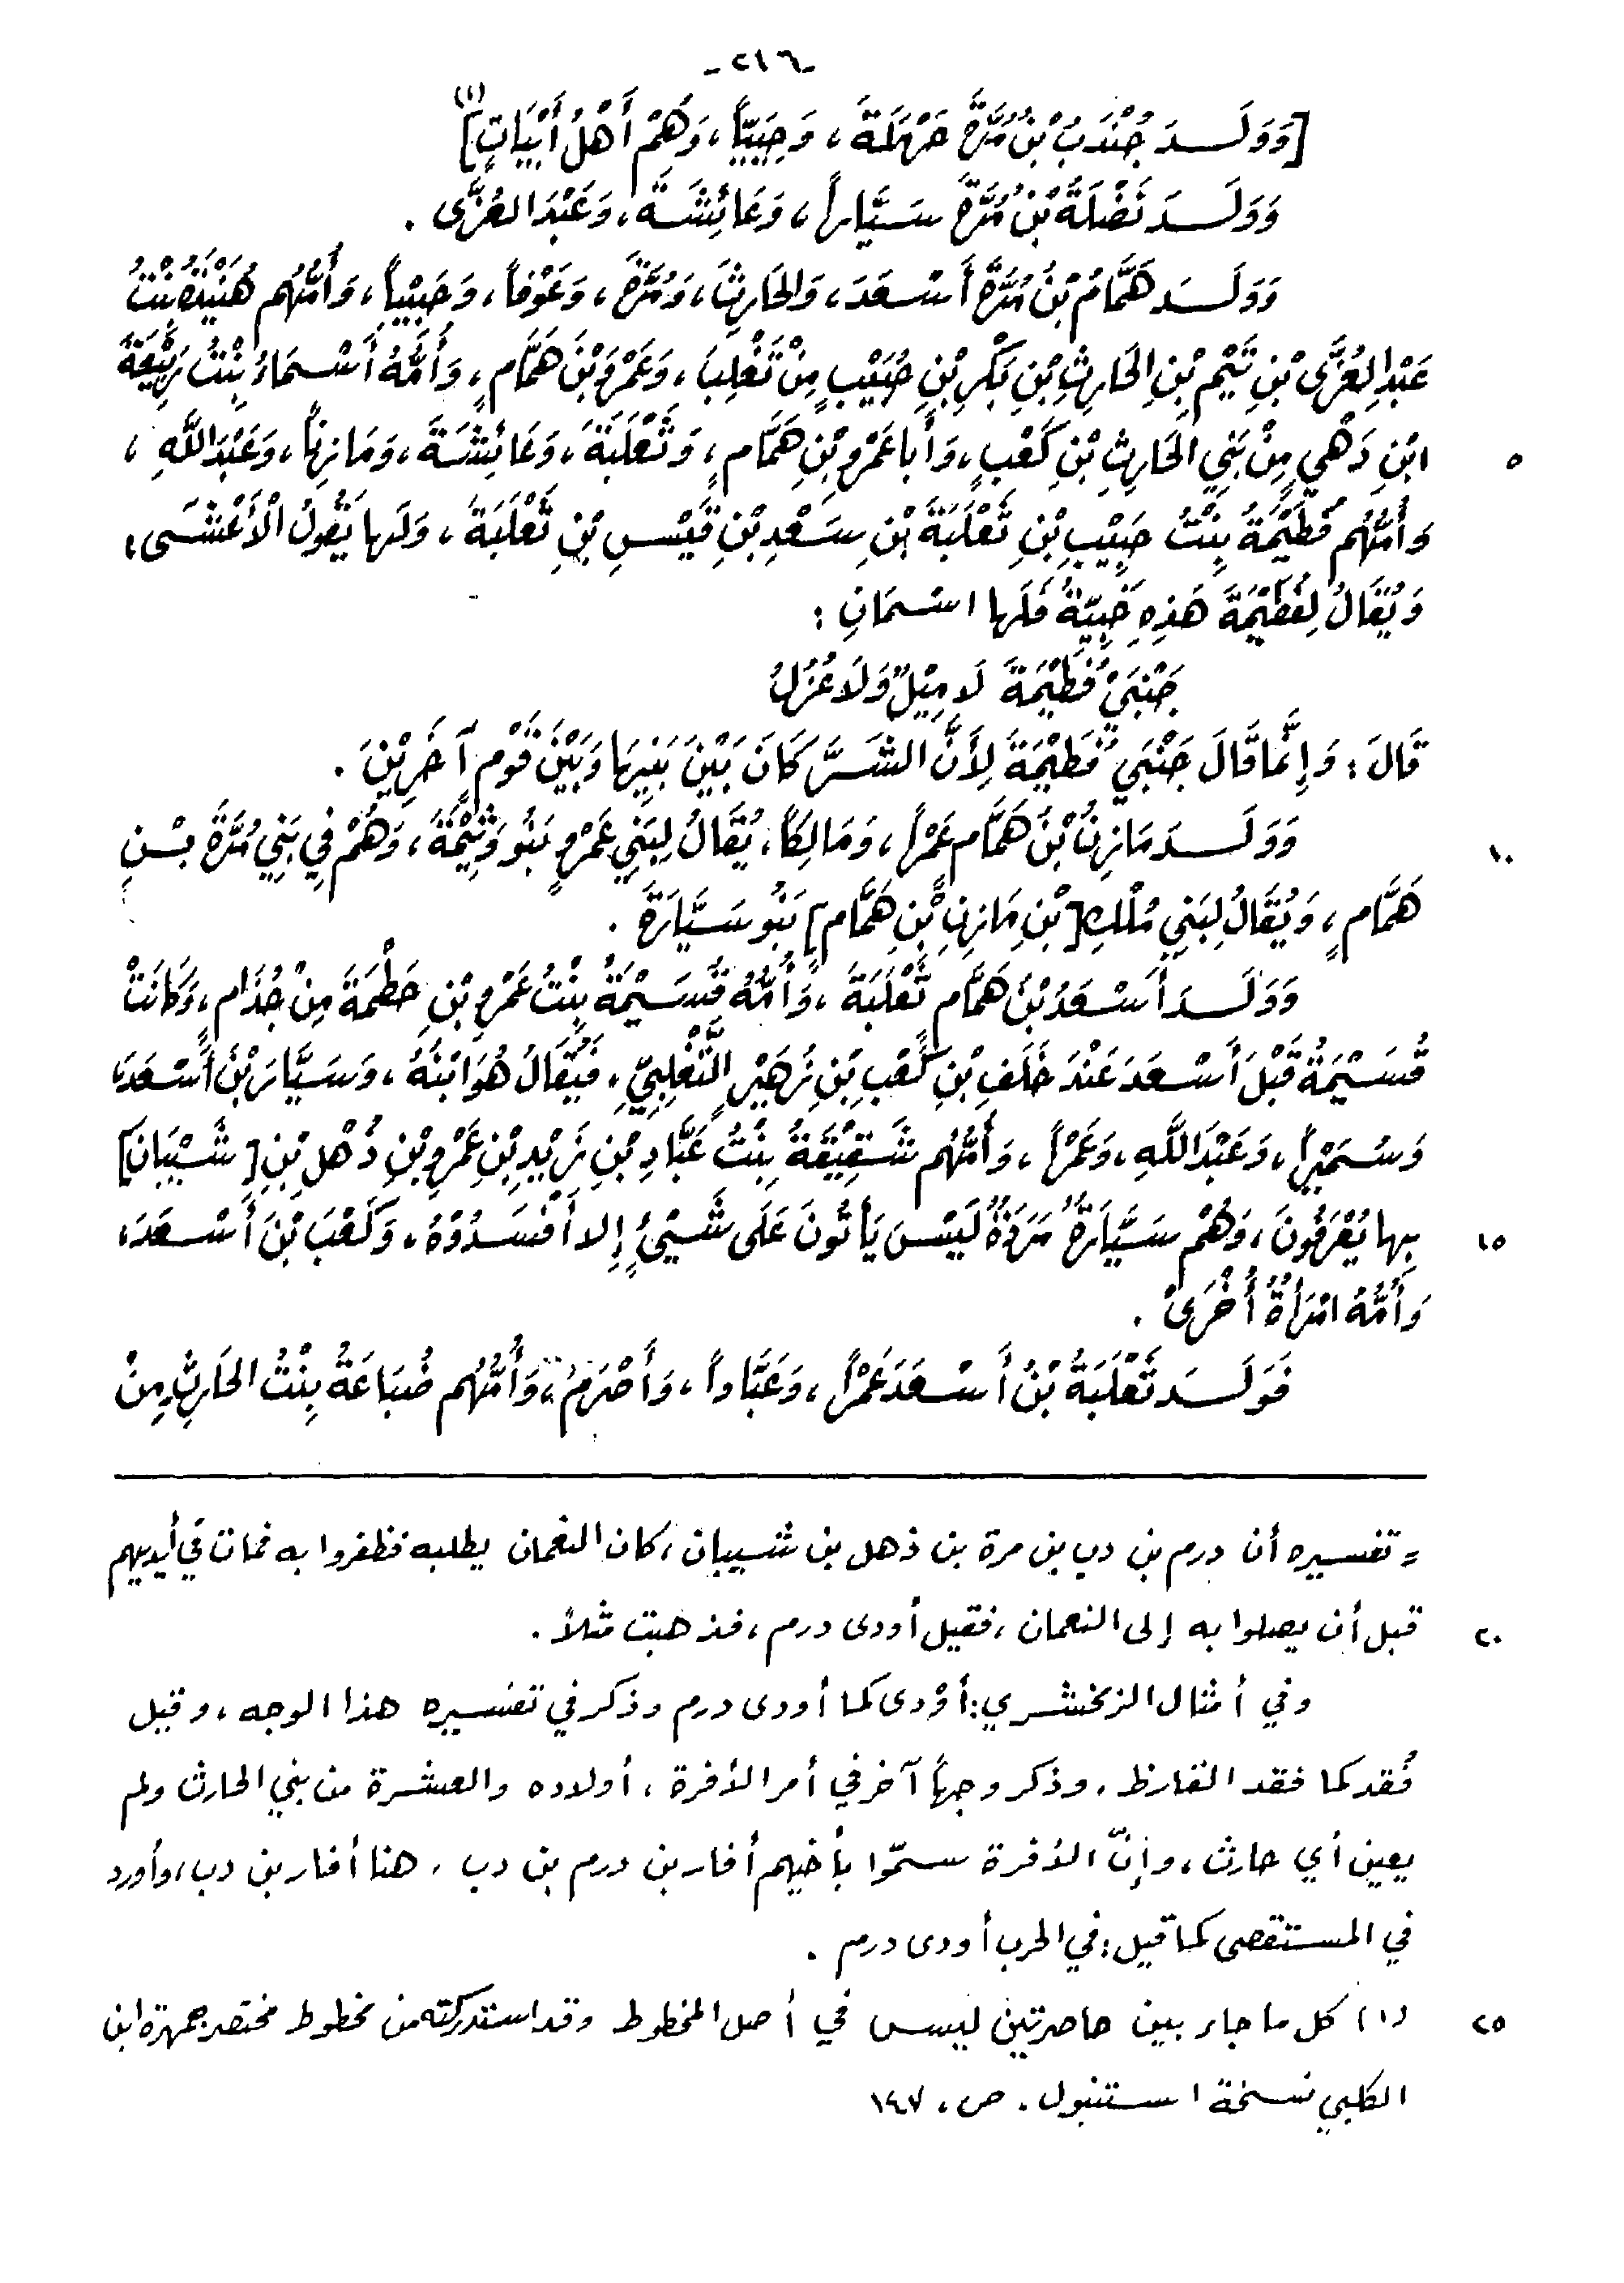 -٢١٦-
[وَوَلَدَ جُنْدَبُ بْنُ مُرَّةَ حَرْمَلَةَ، وَحَبِيْباً، وَهُمْ أَهْلُ أَبْيَاتٍ](١)
وَوَلَدَ نَضْلَةُ بْنُ مُرَّةَ سَيَّاراً، وَعَائِشَةَ، وَعَبْدَ العُزَّى .
وَوَلَدَ هَمَّامُ بْنُ مُرَّةَ أَسْعَدَ، وَالحَارِثَ، وَمُرَّةَ، وَعَوْفاً، وَحَبِيْباً، وَأُمُّهُم هُنَيْدَةُ بْنْتُ
عَبْدِ العُزَّى بْنِ تَيْمِ بْنِ الحَارِثِ بْنِ بَكْرِ بْنِ حُبَيْبٍ مِنْ تَغْلِبَ، وَعَمْرَو بْنَ هَمَّامٍ، وَأُمُّهُ أَسْمَاءُ بِنْتُ رَبِيْعَةَ
٥ ابْنِ دَهْيٍ مِنْ بَنِي الحَارِثِ بْنِ كَعْبٍ، وَأَبا عَمْرِو بْنِ هَمَّامٍ، وَثَعْلَبَةَ، وَعَائِشَةَ، وَمَازِناً، وَعَبْدَ اللَّهِ،
وَأُمُّهُم فُطَيْمَةُ بِنْتُ حَبِيْبِ بْنِ ثَعْلَبَةَ بْنِ سَعْدِ بْنِ قَيْسِ بْنِ ثَعْلَبَةَ، وَلَها يَقُولُ الأَعْشَى،
وَيُقَالُ لِفُطَيْمَةَ هَذِهِ حَبِيَّةُ فَلَها اسْمَانِ :
جَنْبَيْ فُطَيْمَةَ لَا مِيْلٌ وَلَا عُزُلُ
قَالَ : وَإِنَّمَا قَالَ جَنْبَيْ فُطَيْمَةَ لِأَنَّ الشَّرَّ كَانَ بَيْنَ بَنِيْهَا وَبَيْنَ قَوْمٍ آخَرِيْنَ .
١٠ وَوَلَدَ مَازِنُ بْنُ هَمَّامٍ عَمْراً، وَمَالِكاً، يُقَالُ لِبَنِي عَمْرٍو بَنُو وَثِيْمَةَ، وَهُمْ فِي بَنِي مُرَّةَ بْنِ
هَمَّامٍ، وَيُقَالُ لِبَنِي مُلْكٍ [بْنِ مَازِنِ بْنِ هَمَّامٍ] بَنُو سَيَّارَةَ .
وَوَلَدَ أَسْعَدُ بْنُ هَمَّامٍ ثَعْلَبَةَ، وَأُمُّهُ قُسَيْمَةُ بِنْتُ عَمْرِو بْنِ حَطْمَةَ مِنْ جُذَامٍ، وَكَانَتْ
قُسَيْمَةُ قَبْلَ أَسْعَدَ عَنْدَ خَلَفِ بْنِ كَعْبِ بْنِ زُهَيْرٍ التَّغْلِبِيِّ، فَيُقَالُ هُوَ ابْنُهُ، وَسَيَّارَ بْنَ أَسْعَدَ،
وَسُمَيْراً، وَعَبْدَ اللَّهِ، وَعَمْراً، وَأُمُّهُم شَقِيْقَةُ بِنْتُ عَبَّادِ بْنِ زَيْدِ بْنِ عَمْرِو بْنِ ذُهْلِ بْنِ [شَيْبَانَ]
١٥ بِها يُعْرَفُونَ، وَهُمْ سَيَّارَةُ مَرَدَةٌ لَيْسَ يَأْتُونَ عَلَى شَيْئٍ إِلا أَفْسَدُوْهُ، وَكَعْبَ بْنَ أَسْعَدَ،
وَأُمُّهُ امْرَأَةٌ أُخْرَى .
فَوَلَدَ ثَعْلَبَةُ بْنُ أَسْعَدَ عَمْراً، وَعَبَّاداً، وَأَصْرَمَ، وَأُمُّهُم ضُبَاعَةُ بِنْتُ الحَارِثِ مِنْ
= تفسيره أن درم بن دب بن مرة بن ذهل بن شيبان، كان النعمان يطلبه فظفروا به فمات في أيديهم
٢٠ قبل أن يصلوا به إلى النعمان، فقيل أودى درم، فذهبت مثلاً .
وفي أمثال الزمخشري: أوْدى كما أودى درم وذكر في تفسيره هذا الوجه، وقيل
فُقد كما فقد القارظ، وذكر وجهاً آخر في أمر الأفرة، أولاده والعشرة من بني الحارث ولم
يعين أي حارث، وإنّ الأفرة سمّوا بأخيهم أفار بن درم بن دب، هنا أفار بن دب، وأورد
في المستقصى كما قيل: في الحرب أودى درم .
٢٥ (١) كل ما جاء بين حاصرتين ليس في أصل المخطوط وقد استدركته من مخطوط مختصر جمهرة ابن
الكلبي نسخة استنبول . ص، ١٤٧